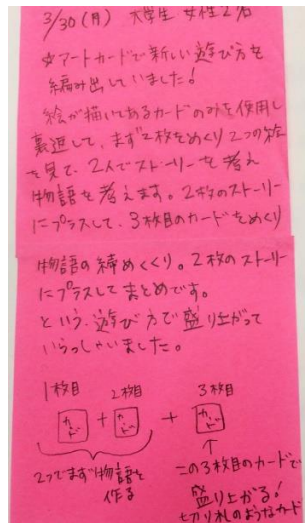 3/30(月) 大学生 女性2名
☆アートカードで新しい遊び方を
編み出していました!
絵が描いてあるカードのみを使用し
裏返して、まず2枚をめくり2つの絵
を見て、2人でストーリーを考え
物語を考えます。2枚のストーリー
にプラスして、3枚目のカードをめくり
物語の締めくくり。2枚のストーリー
にプラスしてまとめです。
という、遊び方で盛り上がって
いらっしゃいました。
1枚目 2枚目 3枚目
カード + カード + カード
2つでまず物語を
作る
この3枚目のカードで
盛り上がる!
切り札のようなカード